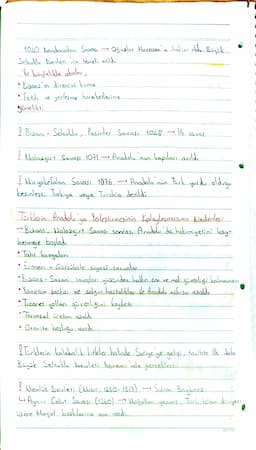 1040 Dandanakan Savaşı → Oğuzlar Horasan'a hakim oldu. Büyük
Selçuklu Devleti'nin temeli atıldı.
• Bizans'ın direncini kırma
• Fetih ve yerleşme hareketlerine
yöneldi.
! Bizans - Selçuklu, Pasinler Savaşı 1048 → İlk savaş
! Malazgirt Savaşı 1071 → Anadolu'nun kapıları açıldı
! Miryokefalon Savaşı 1176 → Anadolu'nun Türk yurdu olduğu
kesinleşti. Türkiye veya Turchia denildi
Türklerin Anadolu'ya Yerleşmesinin Kolaylaşmasının Nedenleri
• Bizans, Malazgirt Savaşı sonrası Anadolu'da hakimiyetini kay-
betmeye başladı
• Taht kavgaları
• Ermeni - Gürcülerle siyasi sorunlar
• Bizans - Sasani savaşları yüzünden halkın can ve mal güvenliği kalmaması
• Yönetim baskısı ve salgın hastalıklar ile Anadolu nüfusu azaldı
• Ticaret yolları güvenliğini kaybetti
• Tarımsal üretim azaldı
• Otorite boşluğu vardı
! Türklerin kalabalık kitleler halinde Suriye'ye gelişi, tarihte ilk defa
Büyük Selçuklu Devleti zamanında gerçekleşti
! Memlük Devleti (Mısır, 1250-1517) → Sultan Baybars
↳ Ayn-ı Calut Savaşı (1260) → Moğolları yenmiş, Türk İslam dünyası
üzerine Moğol baskılarına son verdi.